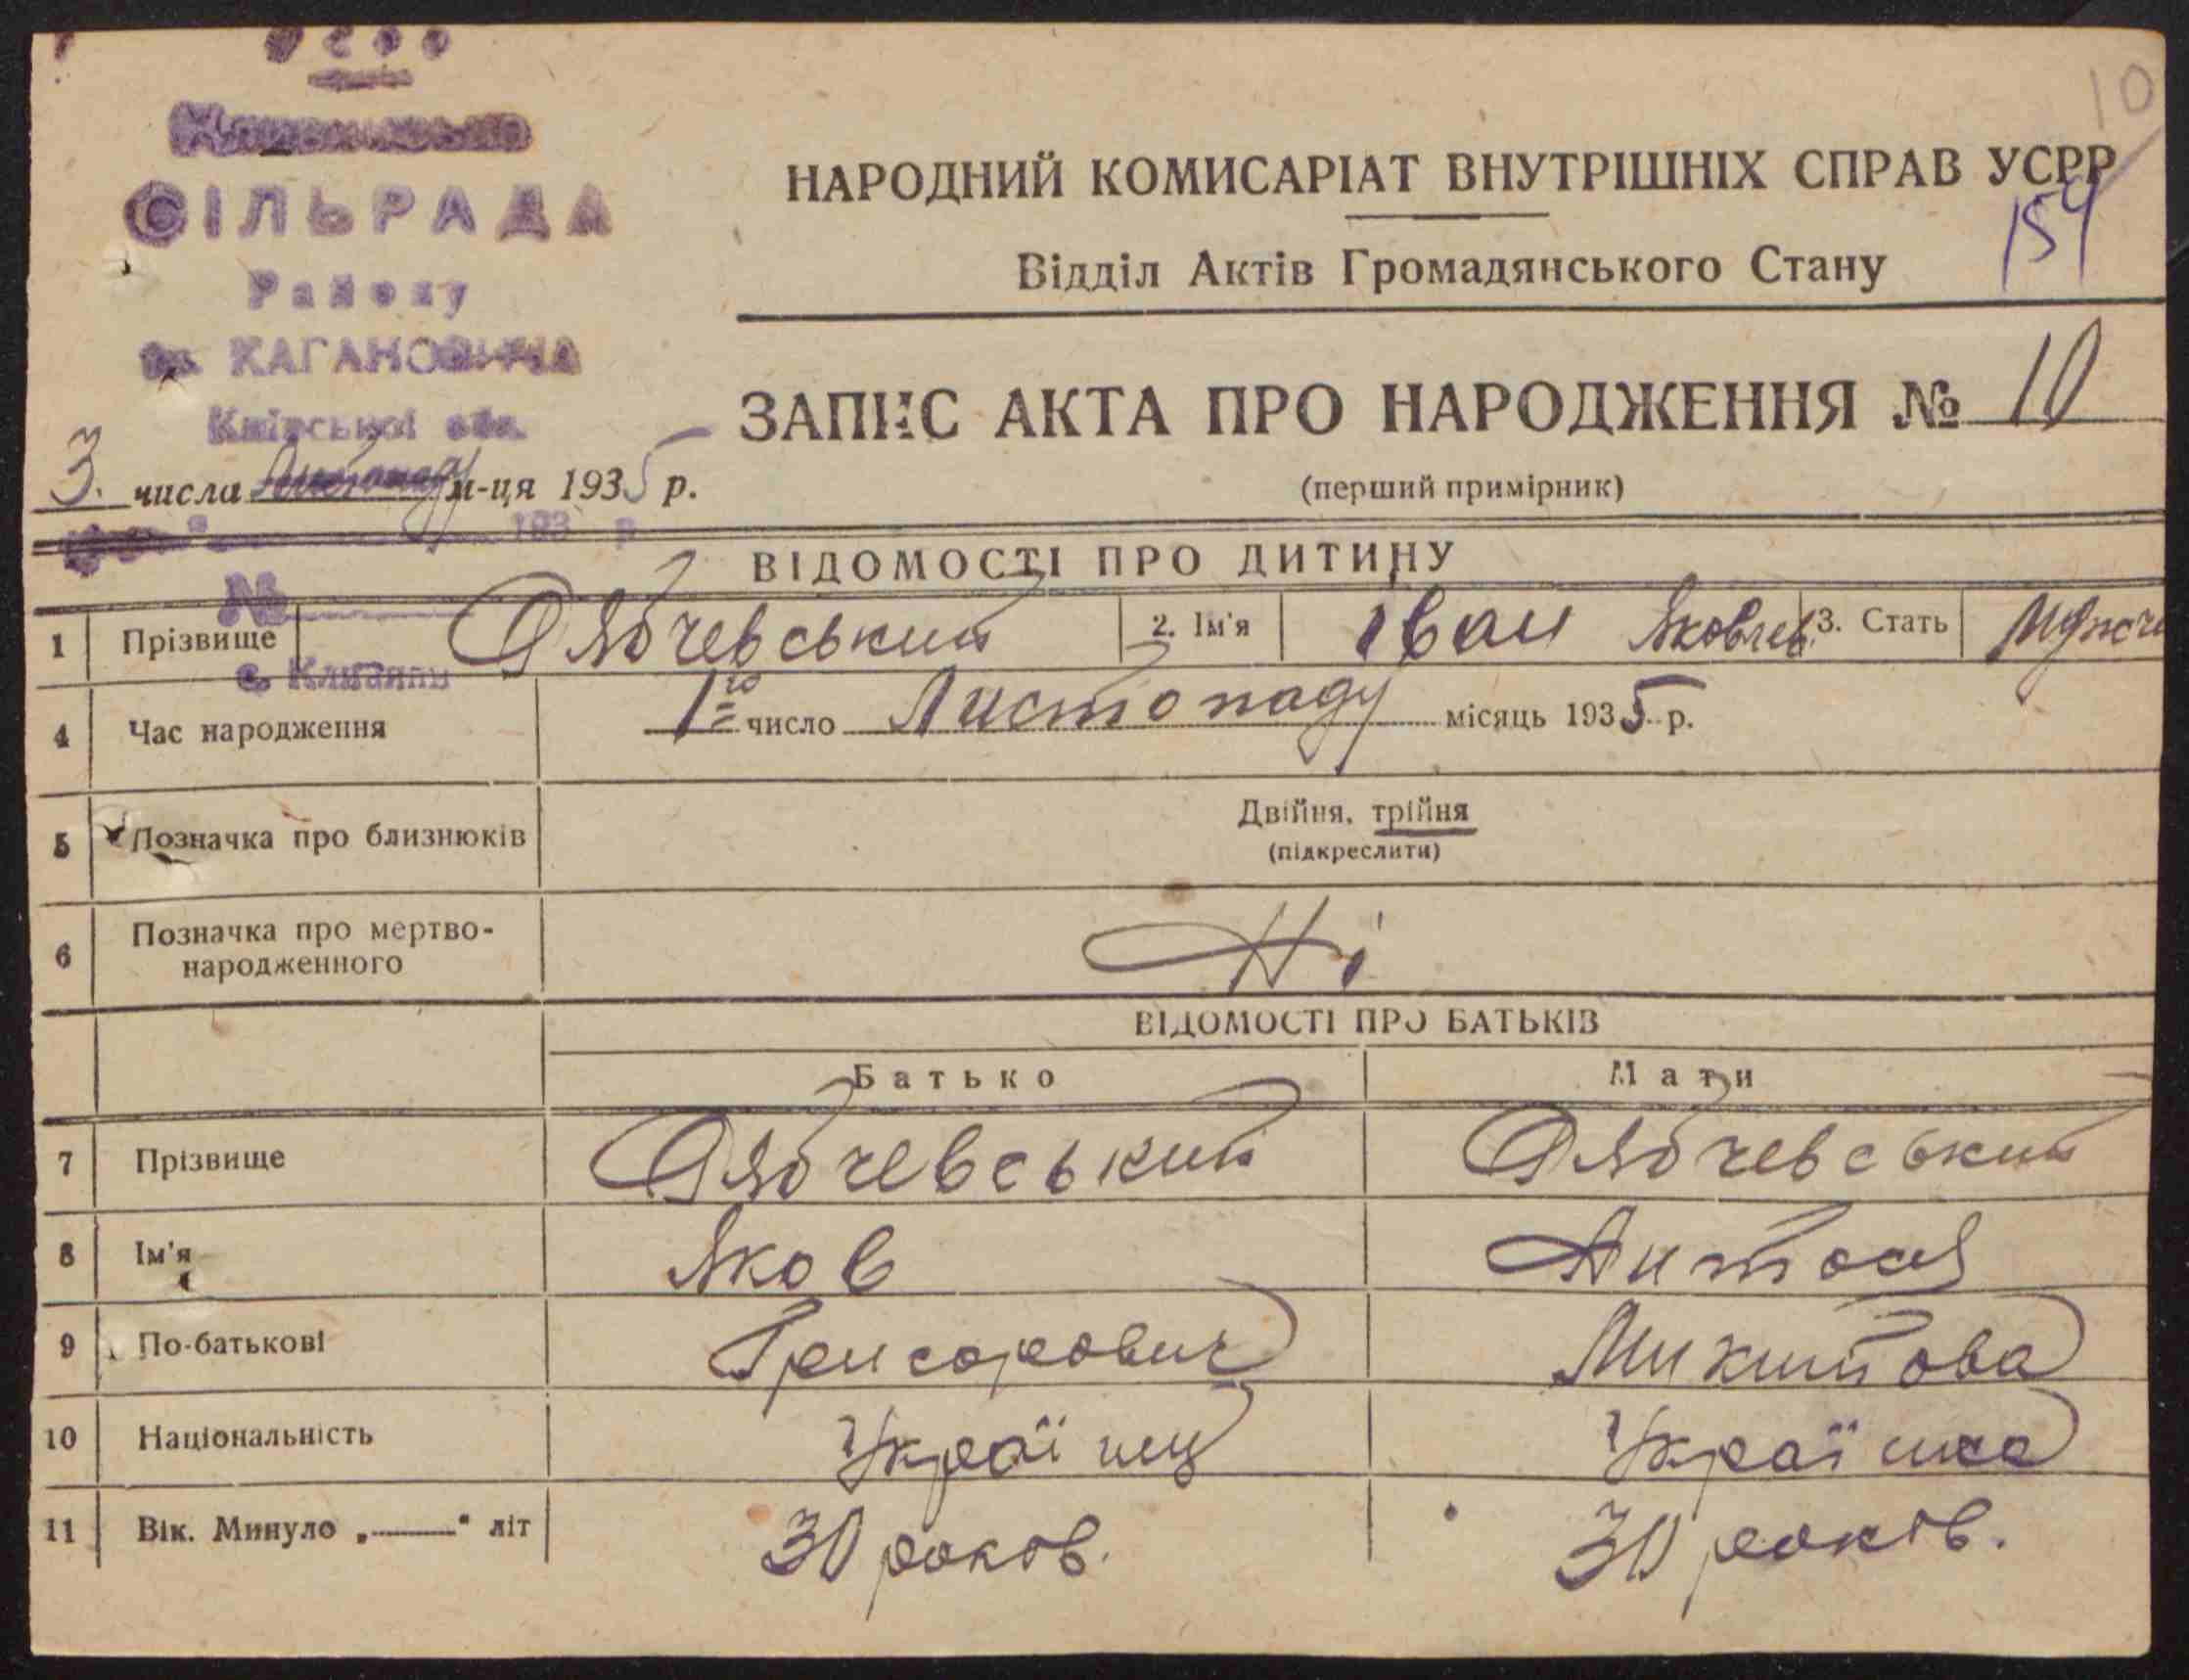 УСРР
СІЛЬРАДА
Району
ім. КАГАНОВИЧА
Київської обл.
10
НАРОДНИЙ КОМИСАРІАТ ВНУТРІШНІХ СПРАВ УСРР
154
Відділ Актів Громадянського Стану
ЗАПИС АКТА ПРО НАРОДЖЕННЯ № 10
(перший примірник)
3. числа Листопаду м-ця 1935 р.
193 р
ВІДОМОСТІ ПРО ДИТИНУ
№
1 Прізвище Дябчевський 2. Ім'я Іван Яковлев. 3. Стать
с.
4 Час народження 1го число Листопаду місяць 1935 р.
5 Позначка про близнюків Двійня, трійня
(підкреслити)
6 Позначка про мертво-
народженного Ні
ВІДОМОСТІ ПРО БАТЬКІВ
Батько Мати
7 Прізвище Дябчевський Дябчевський
8 Ім'я Яков Антося
9 По-батькові Григорович Микитова
10 Національність Українц Українка
11 Вік. Минуло „——" літ 30 років. 30 років.